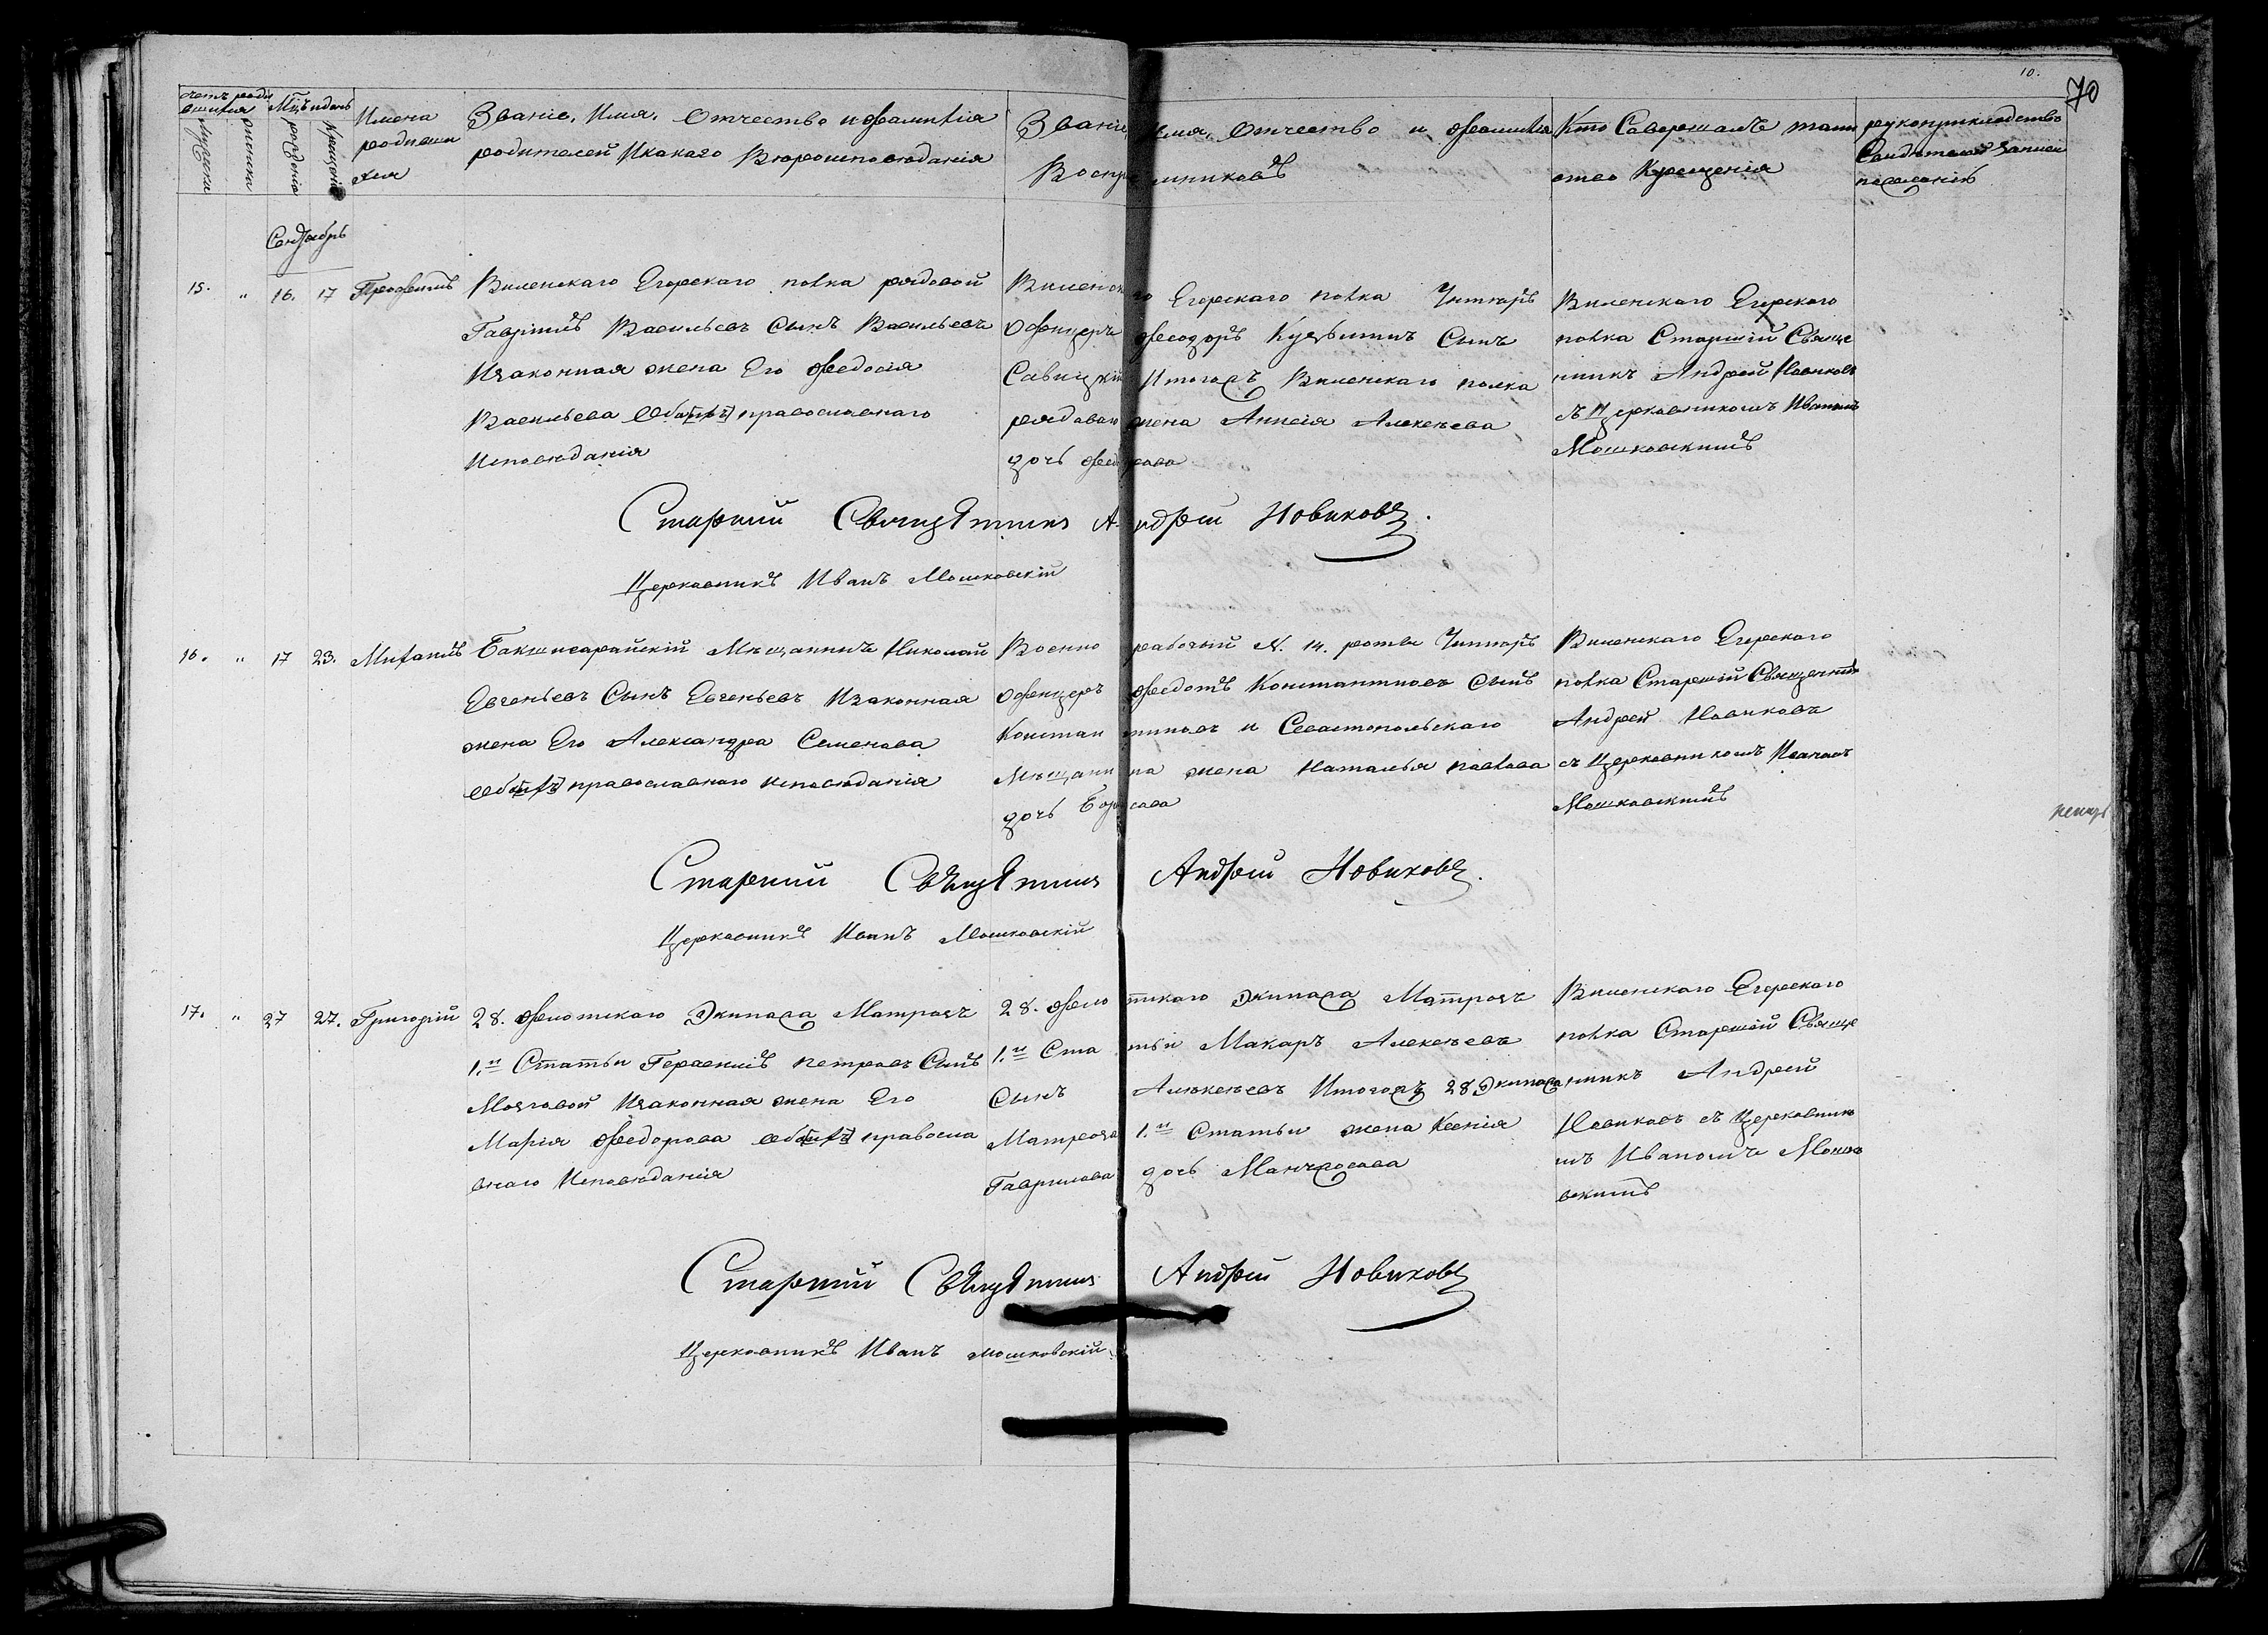 10.
70
Счетъ роди
вшихся
Мужеска
Женска
Мцъ и день
рожденія
Крещенія
Имена
родивши
хся
Званіе, Имя, Отчество и фамилія
родителей И какаго Вѣроисповѣданія
Званіе Имя, Отчество и фамилія
Воспріемниковъ
Кто Совершалъ таин
ство Крещенія
рукоприкладство
Свидѣтелей записи
по желанію
Сентябрь
15. " 16. 17 Трофимъ
Виленскаго Егерскаго полка рядовой
Гавріилъ Васильевъ Сынъ Васильевъ
И законная жена Его Федосія
Васильева Оба православнаго
Исповѣданія
Виленскаго Егерскаго полка Унтеръ
Офицеръ Феодоръ Кузьминъ Сынъ
Савицкій И тогожъ Виленскаго полка
рядоваго жена Анисія Алексѣева
дочь
Виленскаго Егерскаго
полка Старшій Свяще
нникъ Андрей Новиковъ
съ Церковникомъ Иваномъ
Мошковскимъ
Старшій Священникъ Андрей Новиковъ.
Церковникъ Иванъ Мошковскій
16. " 17 23. Михаилъ
Бакчисарайскій Мѣщанинъ Николай
Евгеньевъ Сынъ Евгеньевъ И законная
жена Его Александра Семенова
Оба православнаго исповѣданія
Военно рабочей N. 14. роты Унтеръ
Офицеръ Федотъ Константиновъ Сынъ
Константиновъ и Севастопольскаго
Мѣщанина жена Наталья Павлова
дочь Борисова
Виленскаго Егерскаго
полка Старшій Священникъ
Андрей Новиковъ
съ Церковникомъ Иваномъ
Мошковскимъ
Старшій Священникъ Андрей Новиковъ.
Церковникъ Иванъ Мошковскій
17. " 27 27. Григорій
28. Флотскаго Экипажа Матрозъ
1.й Статьи Герасимъ Петровъ Сынъ
Мозговой И законная жена Его
Марія Федорова Оба правосла
внаго Исповѣданія
28. Флотскаго Экипажа Матрозъ
1.й Статьи Макаръ Алексѣевъ
Сынъ Алексѣевъ И тогожъ 28 Экипажа
Матроза 1.й Статьи жена Ксенія
Гаврилова дочь
Виленскаго Егерскаго
полка Старшій Свяще
нникъ Андрей
Новиковъ съ Церковнико
мъ Иваномъ Мошко
вскимъ
Старшій Священникъ Андрей Новиковъ
Церковникъ Иванъ Мошковскій